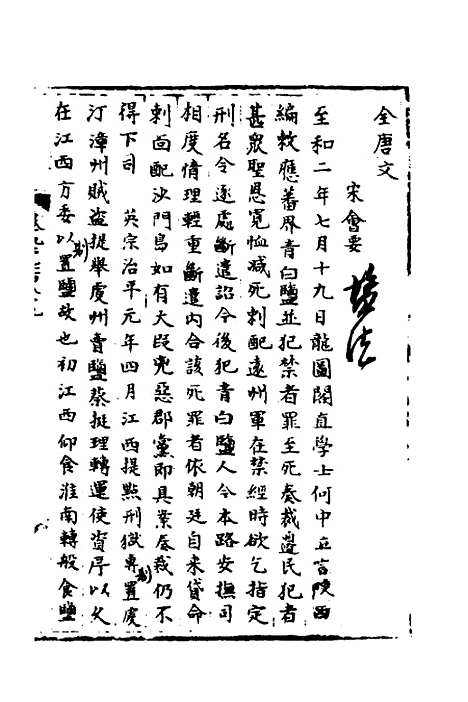 全唐文
宋會要
鹽法
至和二年七月十九日龍圖閣直學士何中立言陝西
編敕應蕃界青白鹽並犯禁者罪至死奏裁邊民犯者
甚衆聖恩寬恤減死刺配遠州軍在禁經時欲乞指定
刑名令逐處斷遣詔今後犯青白鹽人令本路安撫司
相度情理輕重斷遣內合該死罪者依朝廷自來貸命
刺面配沙門島如有大段兇惡郡黨即具案奏裁仍不
得下司 英宗治平元年四月江西提點刑獄專置虔
汀漳州賊盜提舉虔州賣鹽蔡挺理轉運使資序以久
在江西方委以置鹽故也初江西仰食淮南轉般食鹽